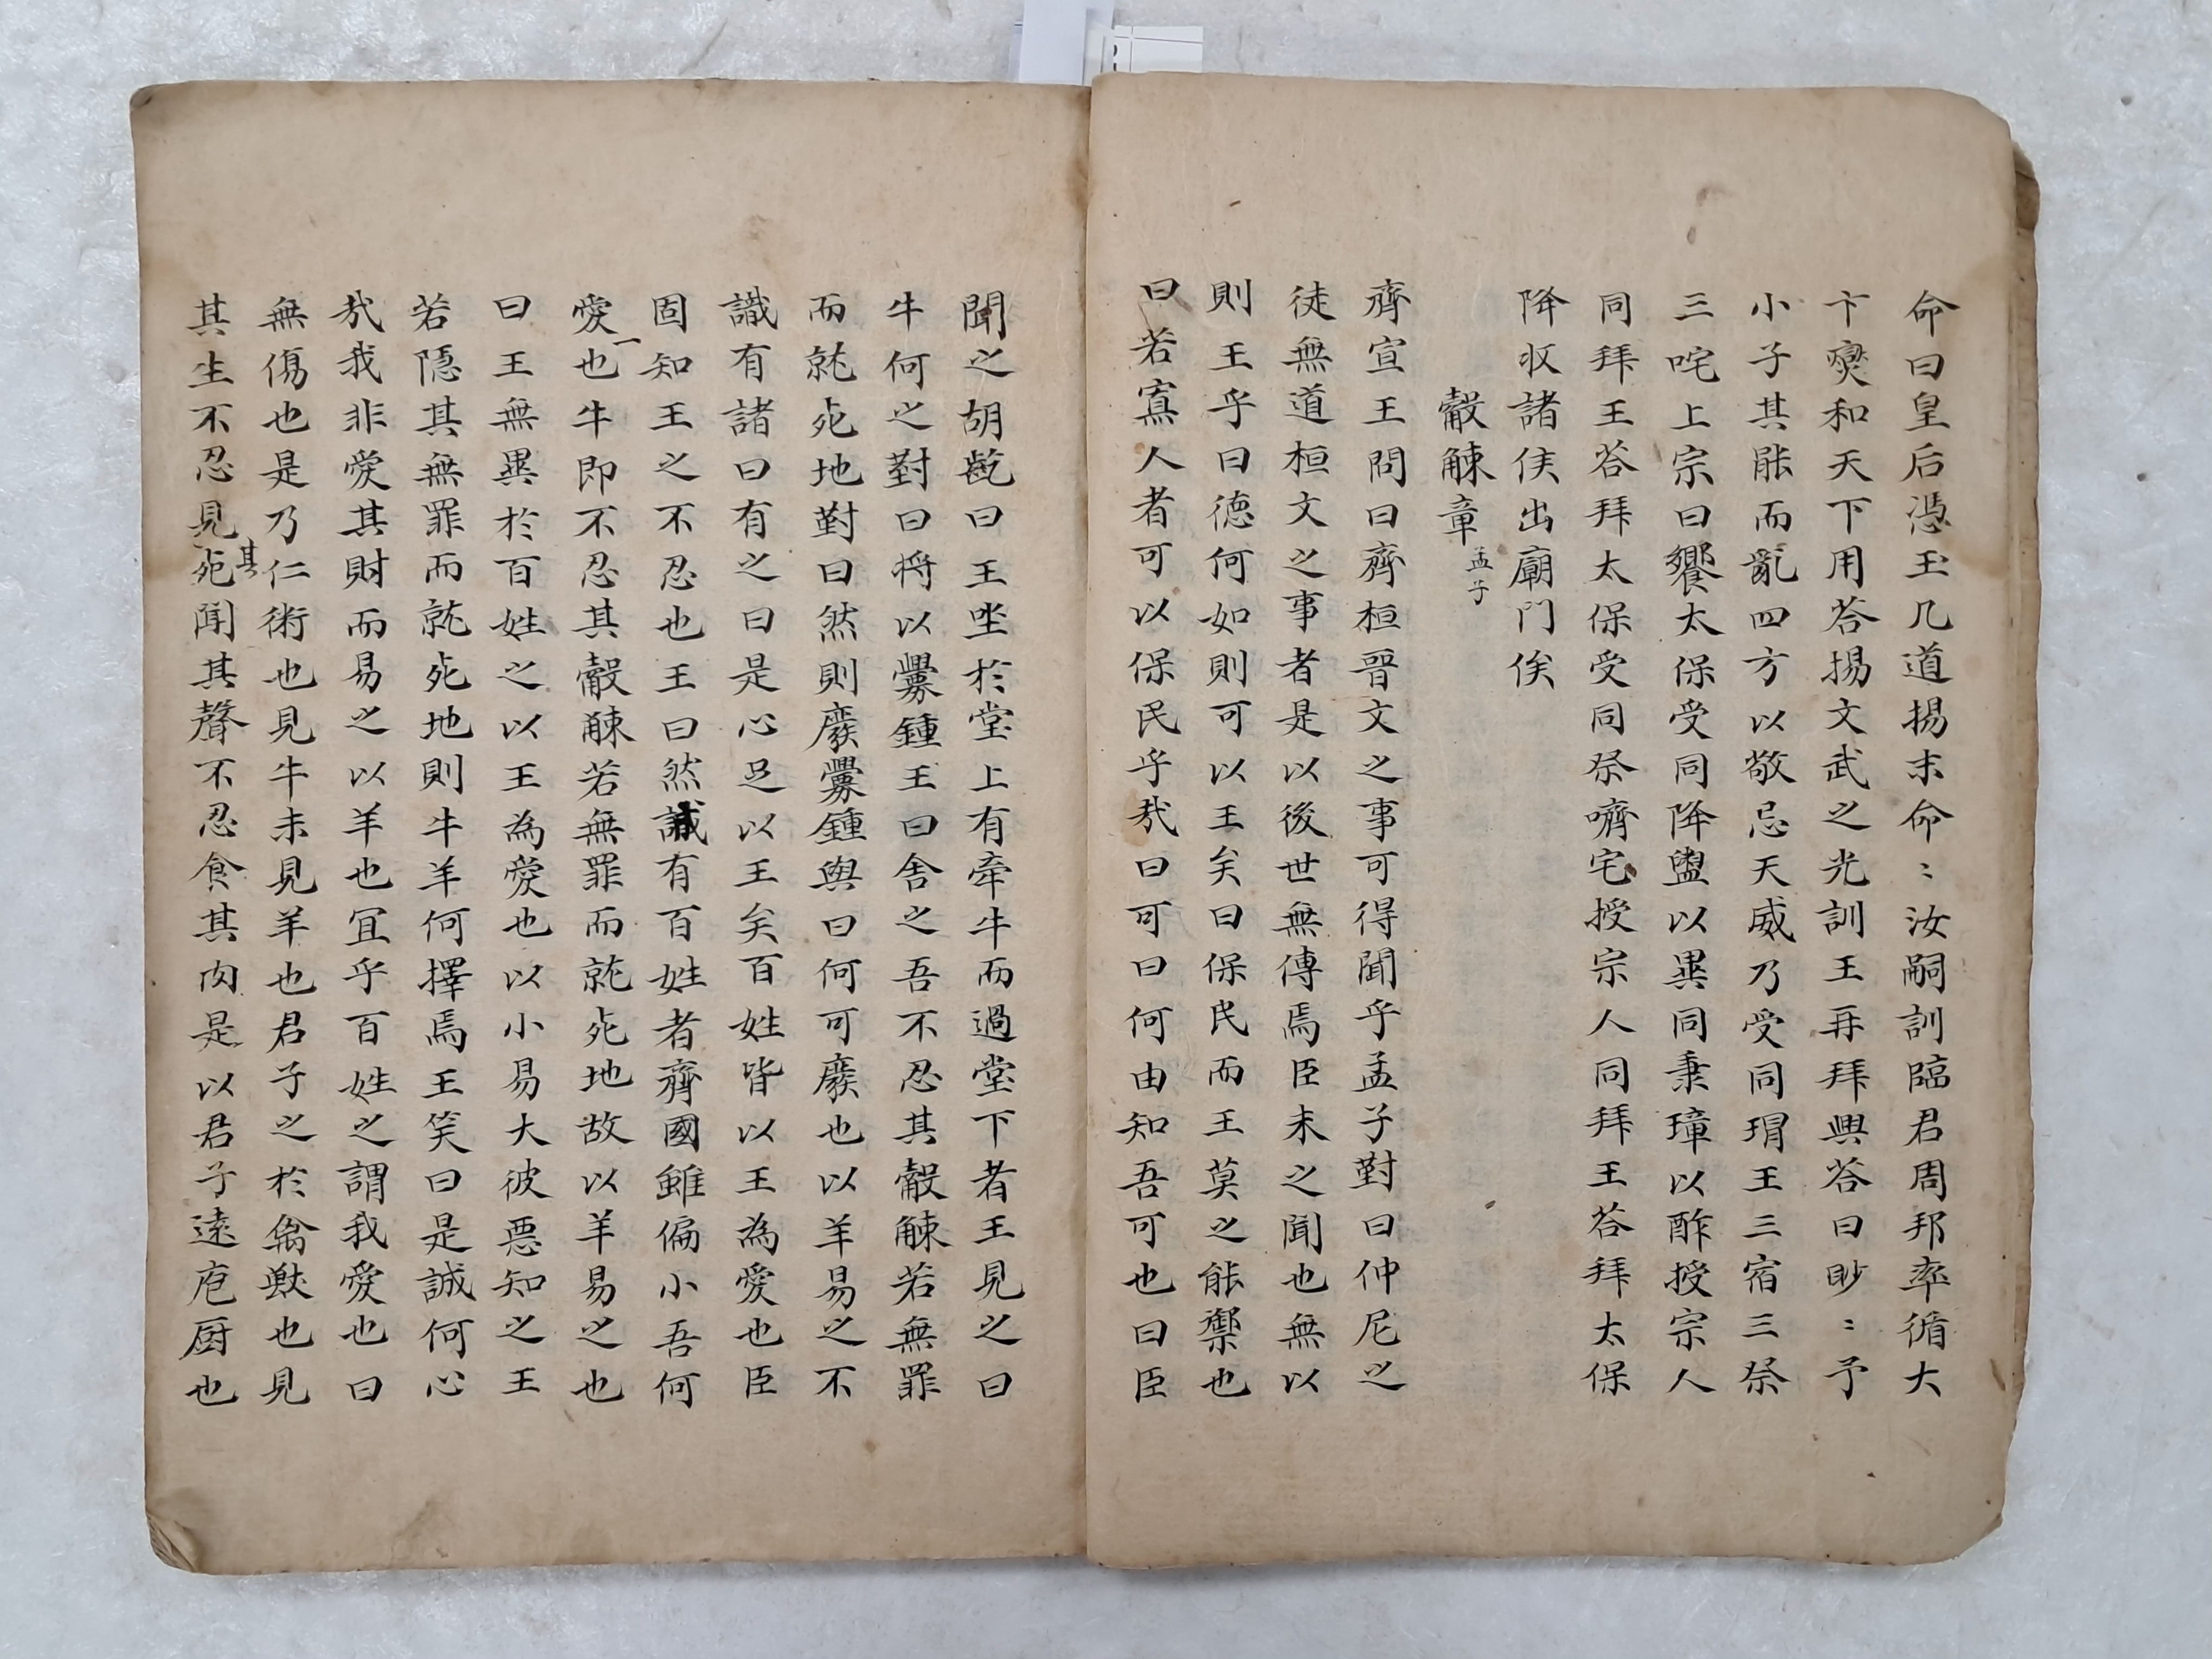 命曰皇后憑玉几道揚末命〻汝嗣訓臨君周邦率循大
卞燮和天下用荅揚文武之光訓王再拜興荅曰眇〻予
小子其能而亂四方以敬忌天威乃受同瑁王三宿三祭
三咤上宗曰饗太保受同降盥以異同秉璋以酢授宗人
同拜王荅拜太保受同祭嚌宅授宗人同拜王荅拜太保
降収諸侯出廟门俟
觳觫章孟子
齊宣王問曰齊桓晉文之事可得聞乎孟子對曰仲尼之
徒無道桓文之事者是以後世無傳焉臣未之聞也無以
則王乎曰德何如則可以王矣曰保民而王莫之能禦也
曰若寡人者可以保民乎㢤曰可曰何由知吾可也曰臣
聞之胡齕曰王坐於堂上有牽牛而過堂下者王見之曰
牛何之對曰将以釁鍾王曰舎之吾不忍其觳觫若無罪
而就死地對曰然則廢釁鍾與曰何可廢也以羊易之不
識有諸曰有之曰是心足以王矣百姓皆以王為愛也臣
固知王之不忍也王曰然誠有百姓者齊國雖偏小吾何
愛一也牛即不忍其觳觫若無罪而就死地故以羊易之也
曰王無異於百姓之以王為愛也以小易大彼惡知之王
若隠其無罪而就死地則牛羊何擇焉王笑曰是誠何心
㢤我非愛其財而易之以羊也冝乎百姓之謂我愛也曰
無傷也是乃仁術也見牛未見羊也君子之於禽獸也見
其生不忍見其死聞其聲不忍食其肉是以君子遠庖厨也